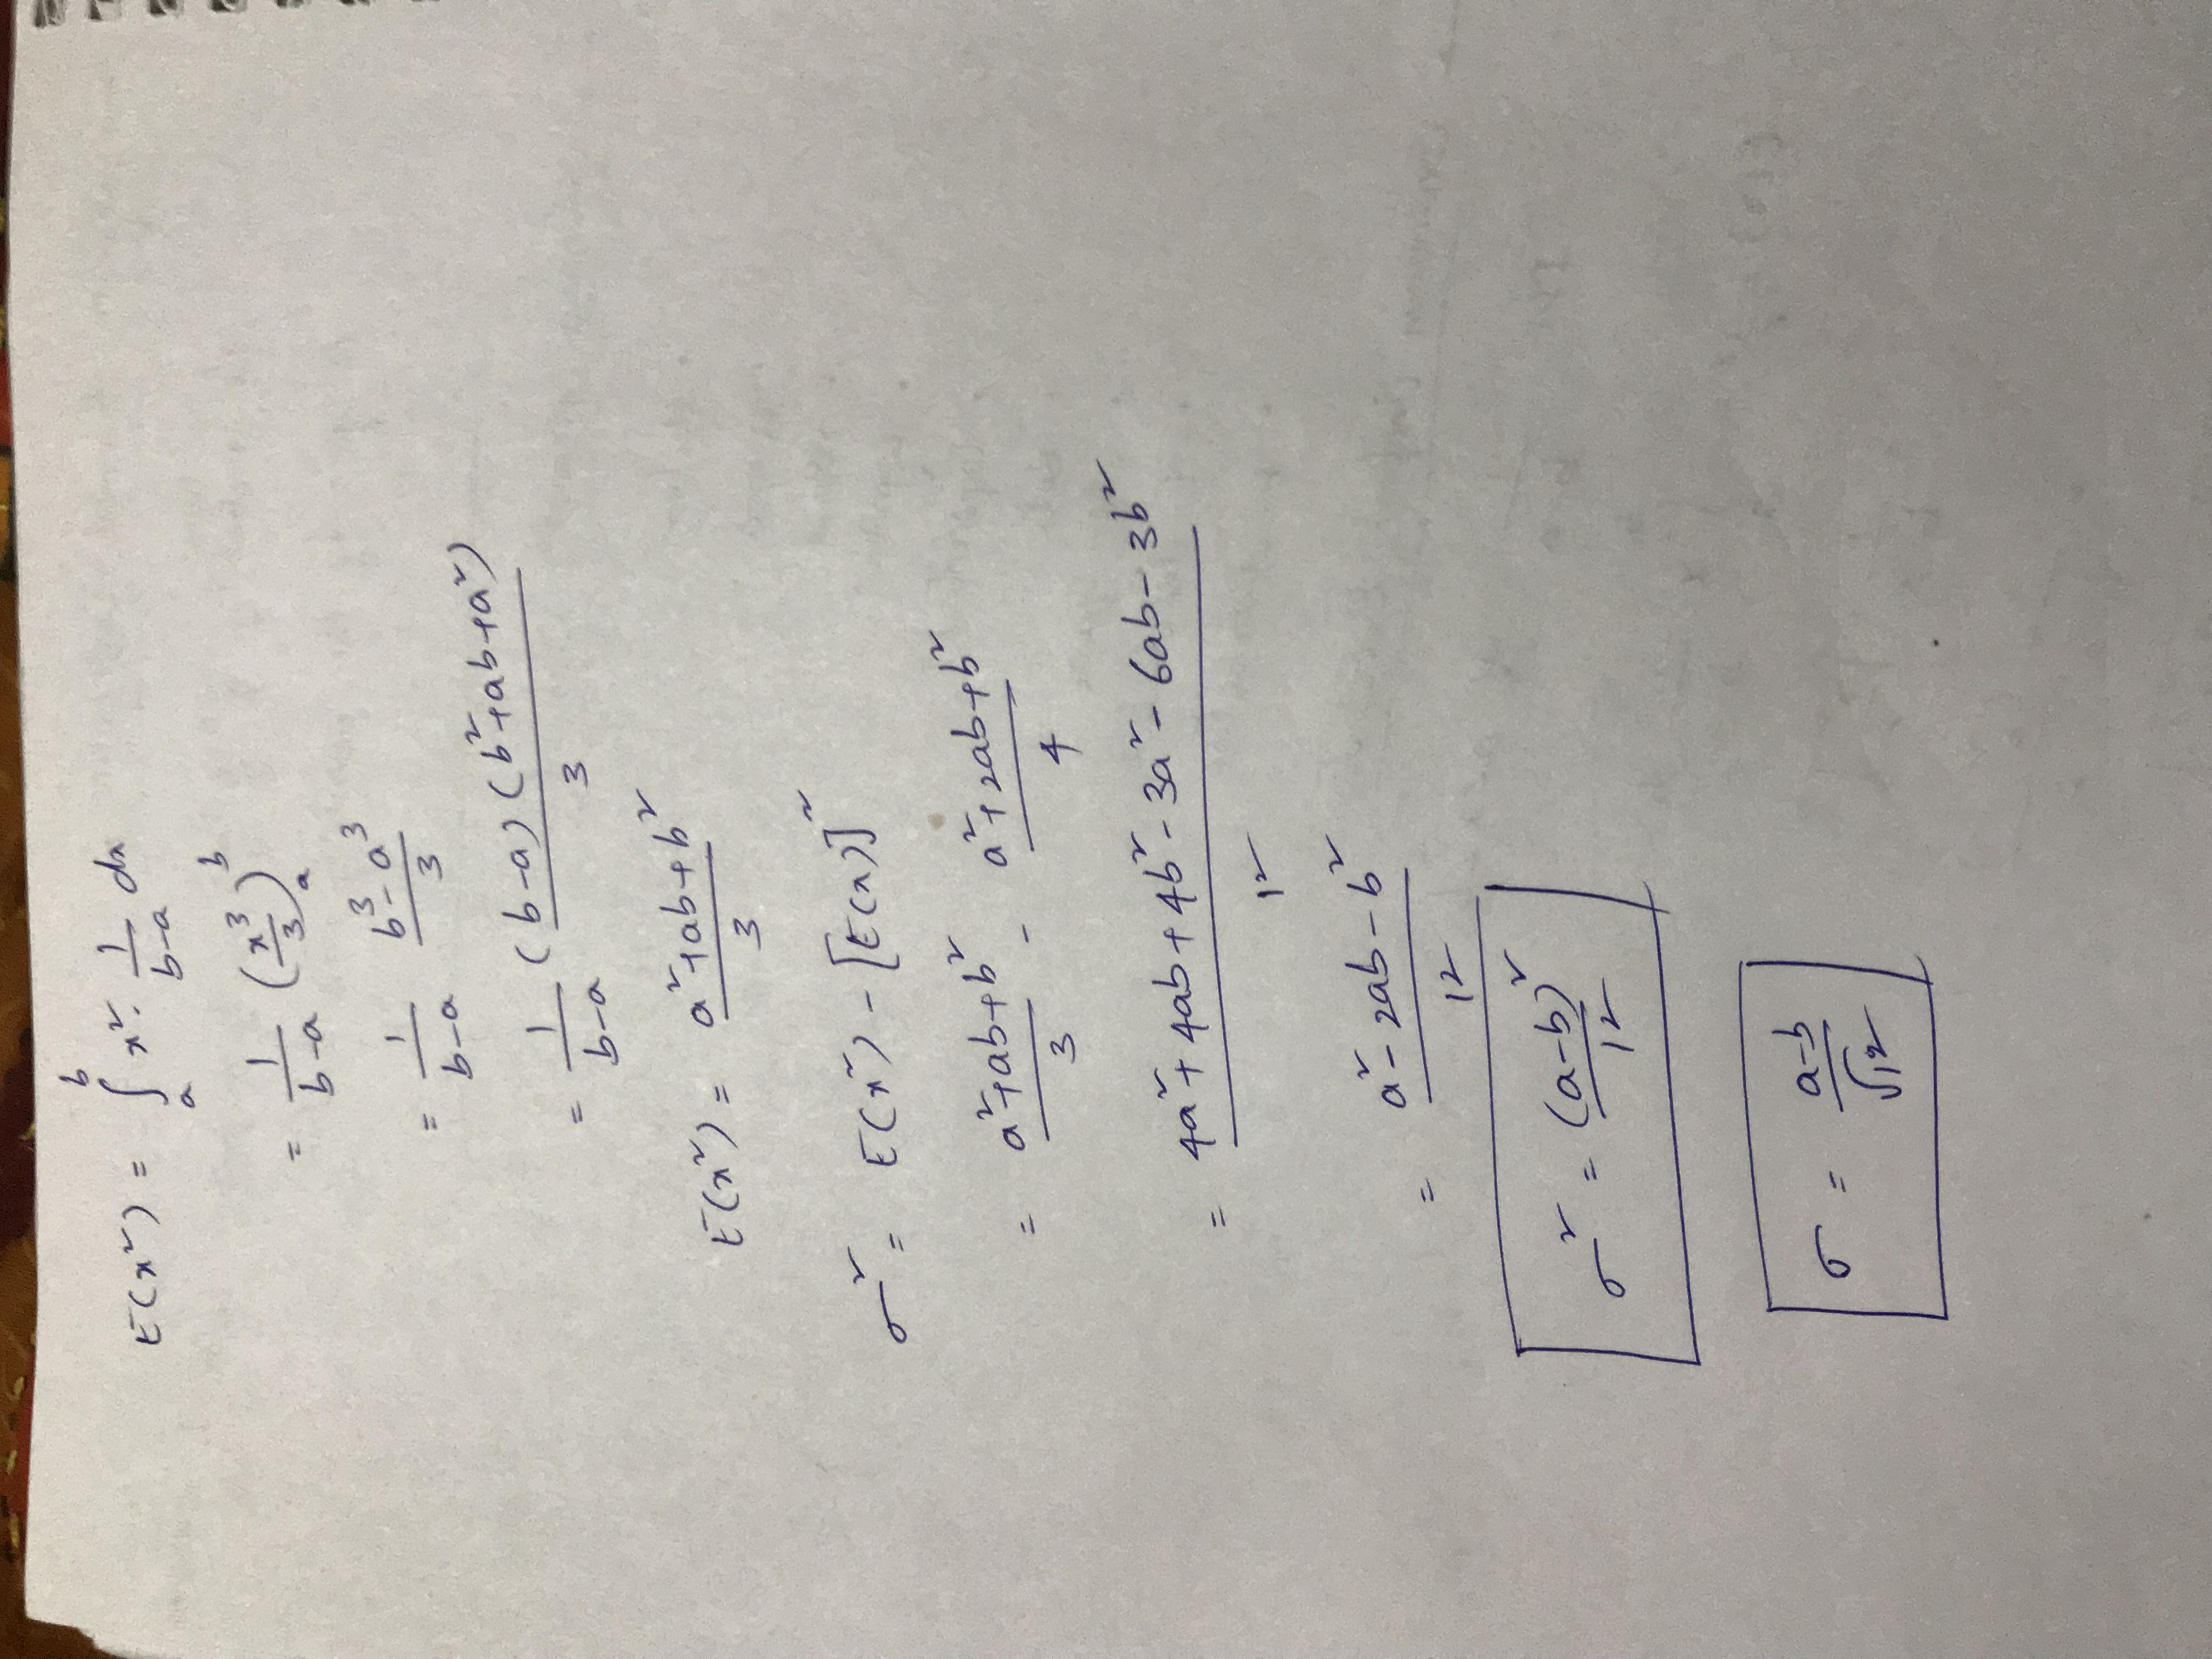 E(x²) = ∫ₐᵇ x². 1/(b-a) dx
= 1/(b-a) (x³/3)ₐᵇ
= 1/(b-a) (b³-a³)/3
= 1/(b-a) (b-a)(b²+ab+a²)/3
E(x²) = (a²+ab+b²)/3
σ² = E(x²) - [E(x)]²
= (a²+ab+b²)/3 - (a²+2ab+b²)/4
= (4a²+4ab+4b²-3a²-6ab-3b²)/12
= (a²-2ab-b²)/12
σ² = (a-b)²/12
σ = (a-b)/√12